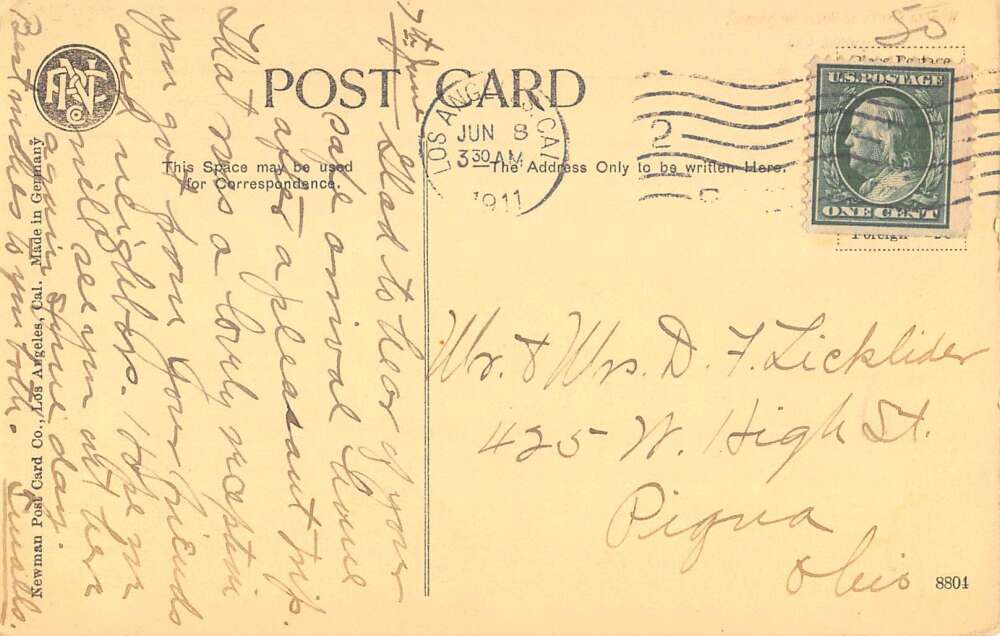 50
POST CARD
This Space may be used
for Correspondence.
The Address Only to be written Here.
LOS ANGELES, CAL.
JUN 8
3 30 AM
1911
2
U.S. POSTAGE
ONE CENT
Place Postage
Foreign
7th June
Glad to hear of your
safe arrival home
after a pleasant trip.
That was a lovely reception
you got from your friends
and neighbors. Hope we
will see you out here
again some day.
Best wishes to you both.
Mr. & Mrs. D. F. Licklider
425 W. High St.
Piqua
Ohio
8804
Newman Post Card Co., Los Angeles, Cal. Made in Germany